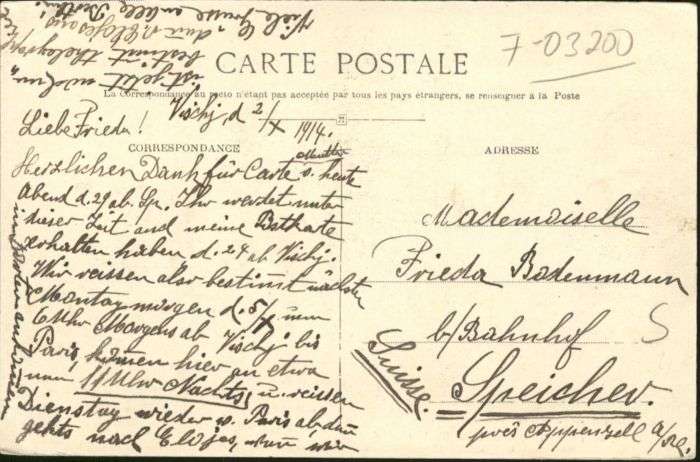 7-03200
CARTE POSTALE
La correspondance au recto n'étant pas acceptée par tous les pays étrangers, se renseigner à la Poste
CORRESPONDANCE
ADRESSE
Vischj, d 2/X 1914.
Liebe Frieda!
Herzlichen Dank für Carte v. Mutter heute
Abend d. 29 ab. Sp. Ihr werdet unter
dieser Zeit auch meine Postkarte
erhalten haben d. 24 ab Vischj.
Wir reissen also bestimmt nächsten
Montag morgen d. 5/X um
6 Uhr Morgens ab Vischj bis
Paris, kommen hier an etwa
um 11 Uhr Nachts, u. reissen
Dienstag wieder v. Paris ab, dann
gehts nach Elojes, wenn wir
ist jetzt
bestimmt
Viele Grüsse an alle
Mademoiselle
Frieda Bodenmann
b/Bahnhof
Speicher.
Suisse.
près Appenzell a/Rh.
S